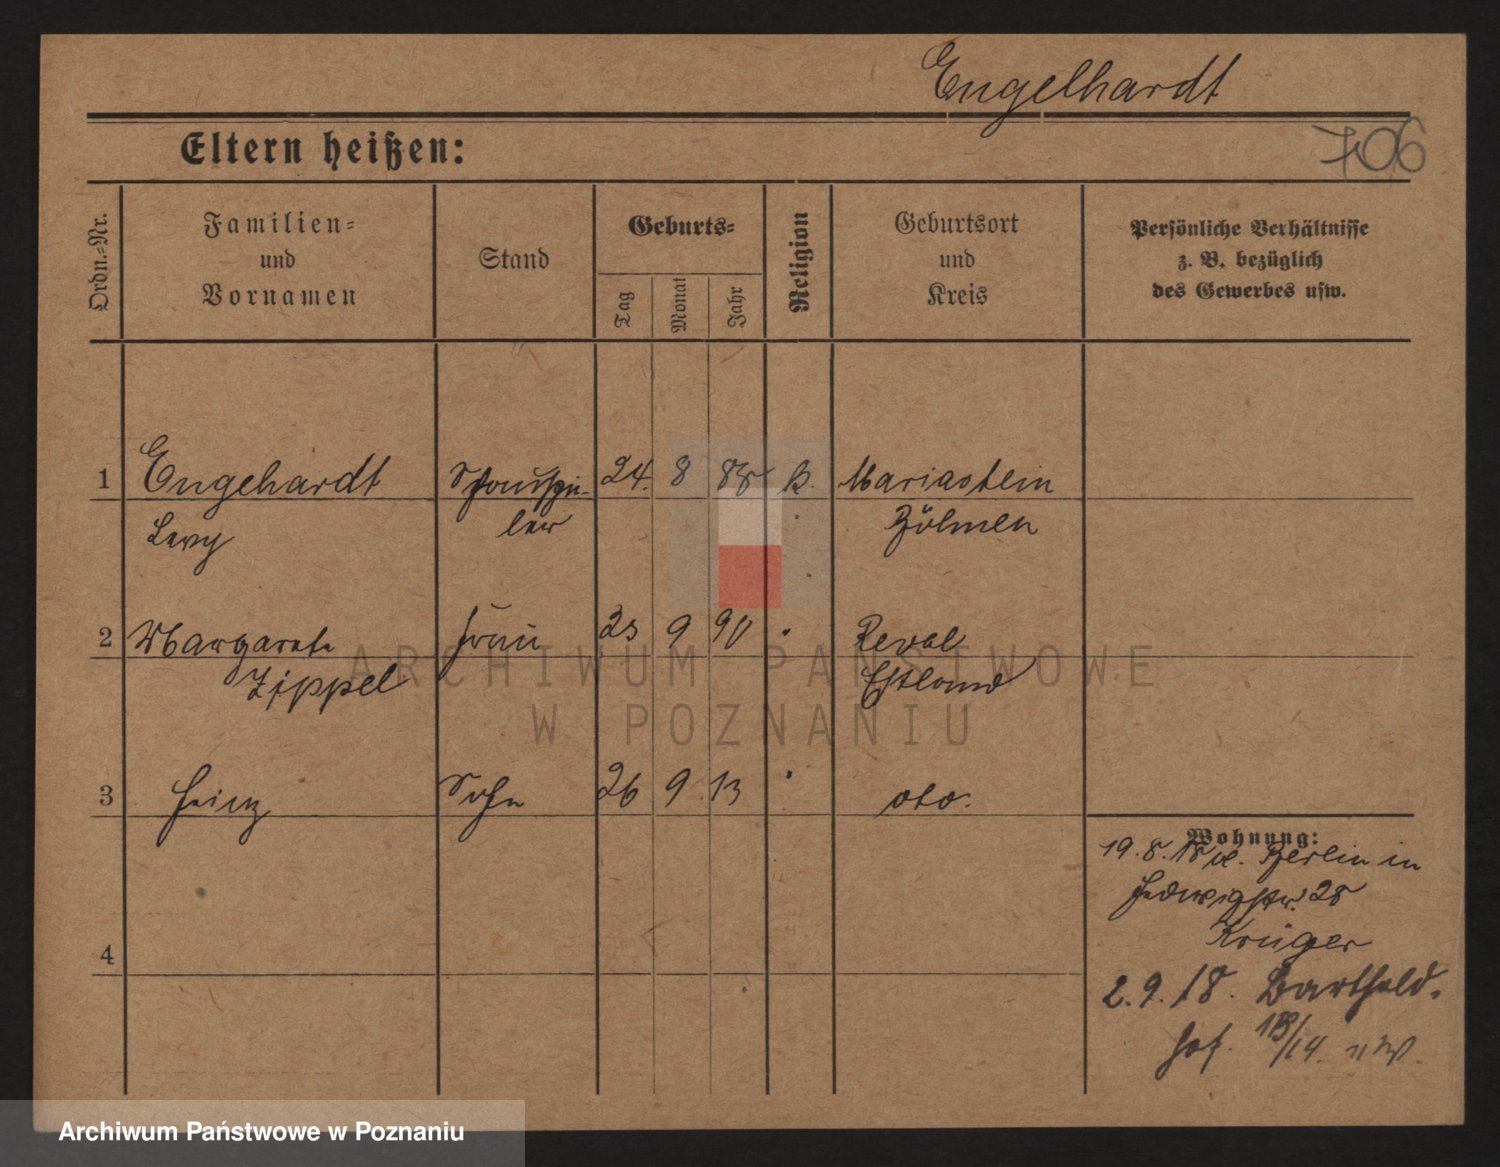 Engelhardt
Eltern heißen:
706
Ordn.=Nr.
Familien=
und
Vornamen
Stand
Geburts=
Tag
Monat
Jahr
Religion
Geburtsort
und
Kreis
Persönliche Verhältnisse
z. B. bezüglich
des Gewerbes usw.
1 Engehardt Schauspie- 24. 8 88 k. Mariastein
ler Böhmen
2 Margarete Frau 9 90 Reval
Zippel Estland
3 Heinz Sohn 26 9 13 oto.
Wohnung:
19. 8. 18 v. Berlin in
Hedwigstr. 28
Krüger
4
2. 9. 18. Barthold-
hof. 14.
ARCHIWUM PAŃSTWOWE
W POZNANIU
Archiwum Państwowe w Poznaniu